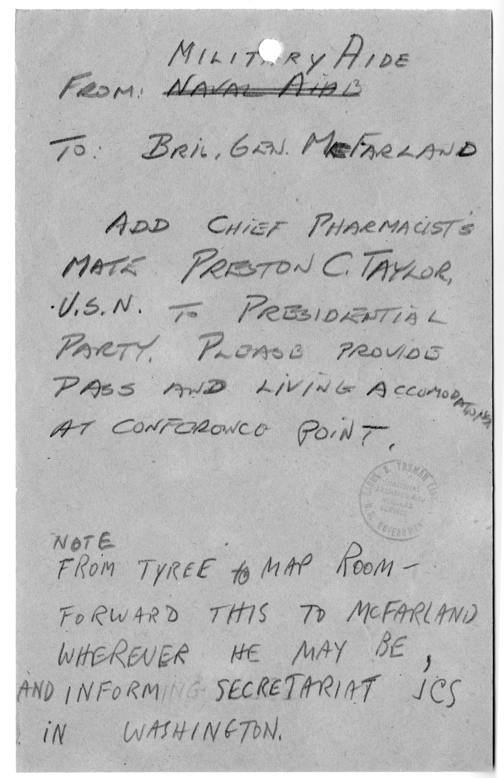 MILITARY AIDE
FROM: NAVAL AIDE
TO: BRIG. GEN. McFARLAND
ADD CHIEF PHARMACIST'S
MATE PRESTON C. TAYLOR,
U.S.N. TO PRESIDENTIAL
PARTY. PLEASE PROVIDE
PASS AND LIVING ACCOMODATIONS
AT CONFERENCE POINT.
NOTE
FROM TYREE to MAP ROOM -
FORWARD THIS TO McFARLAND
WHEREVER HE MAY BE,
AND INFORMING SECRETARIAT JCS
IN WASHINGTON.
HARRY S. TRUMAN